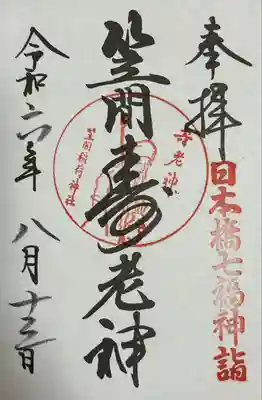 奉拝
日本橋七福神詣
笠間寿老神
寿老神
笠間稲荷神社
令和六年 八月十三日